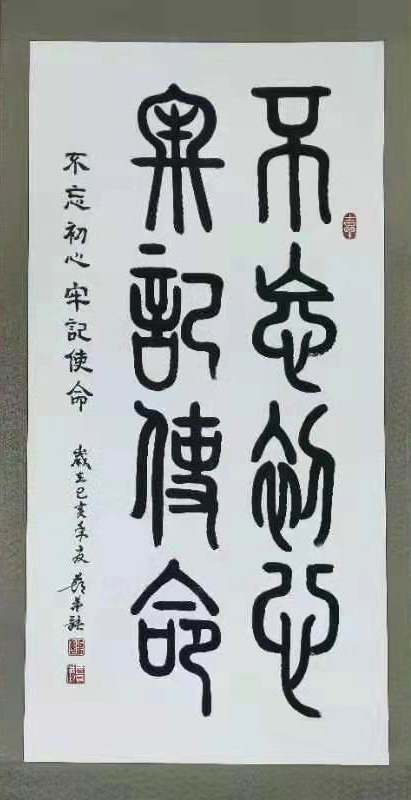 不忘初心
牢記使命
不忘初心 牢記使命 歲在己亥